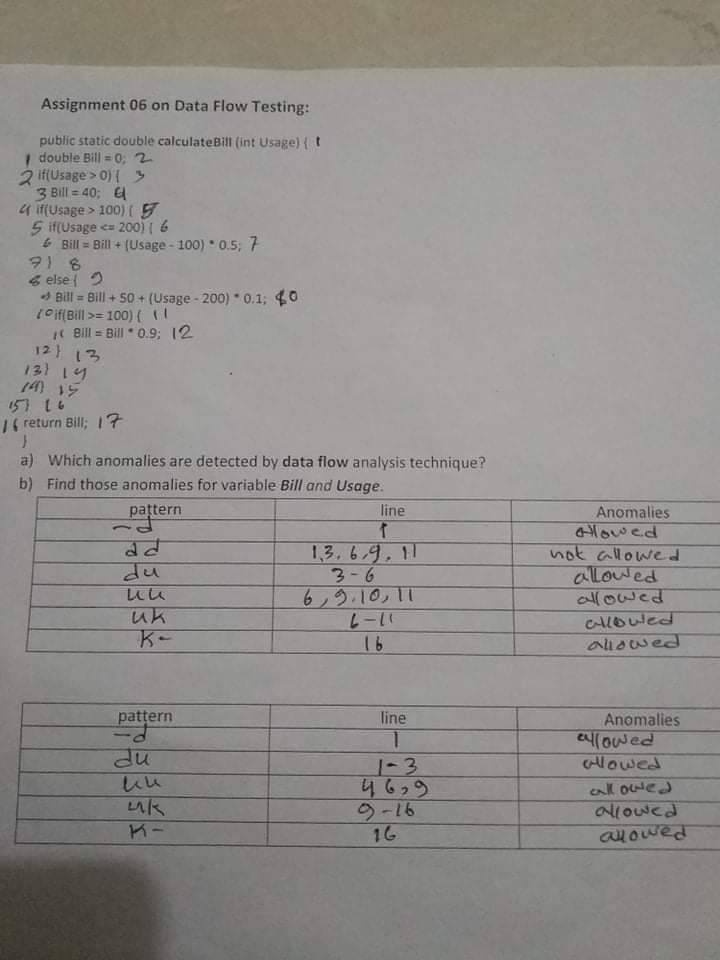 Assignment 06 on Data Flow Testing:
public static double calculateBill (int Usage) { 1
1 double Bill = 0; 2
2 if(Usage > 0) { 3
3 Bill = 40; 4
4 if(Usage > 100) { 5
5 if(Usage <= 200) { 6
6 Bill = Bill + (Usage - 100) * 0.5; 7
7 } 8
8 else { 9
9 Bill = Bill + 50 + (Usage - 200) * 0.1; 10
10 if(Bill >= 100) { 11
11 Bill = Bill * 0.9; 12
12 } 13
13 } 14
14 } 15
15 } 16
16 return Bill; 17
}
a) Which anomalies are detected by data flow analysis technique?
b) Find those anomalies for variable Bill and Usage.
pattern line Anomalies
~d 1 allowed
dd 1,3,6,9,11 not allowed
du 3-6 allowed
uu 6,9,10,11 allowed
uk 6-11 allowed
K~ 16 allowed
pattern line Anomalies
~d 1 allowed
du 1-3 allowed
uu 4 6,9 allowed
uk 9-16 allowed
K~ 16 allowed